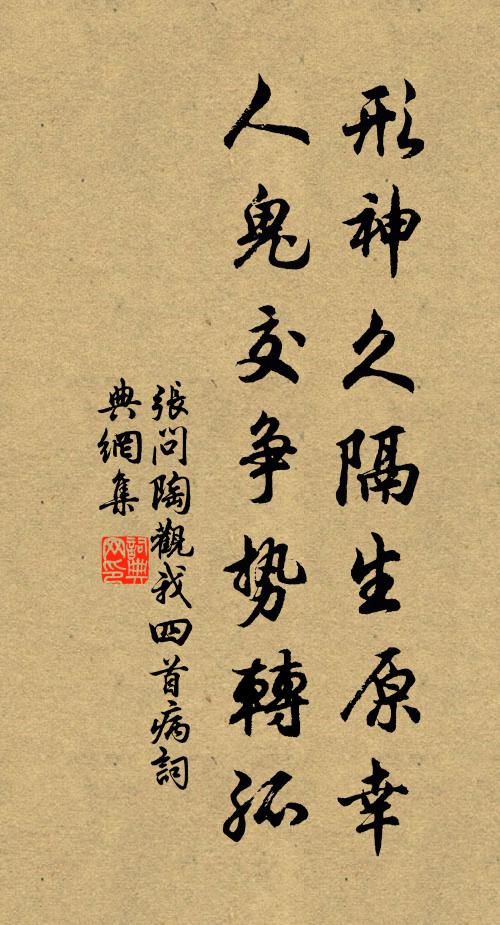 形神久隔生原幸
人鬼交争势轉孤
張问陶觀我四首病詞
典網集
詞典
网印